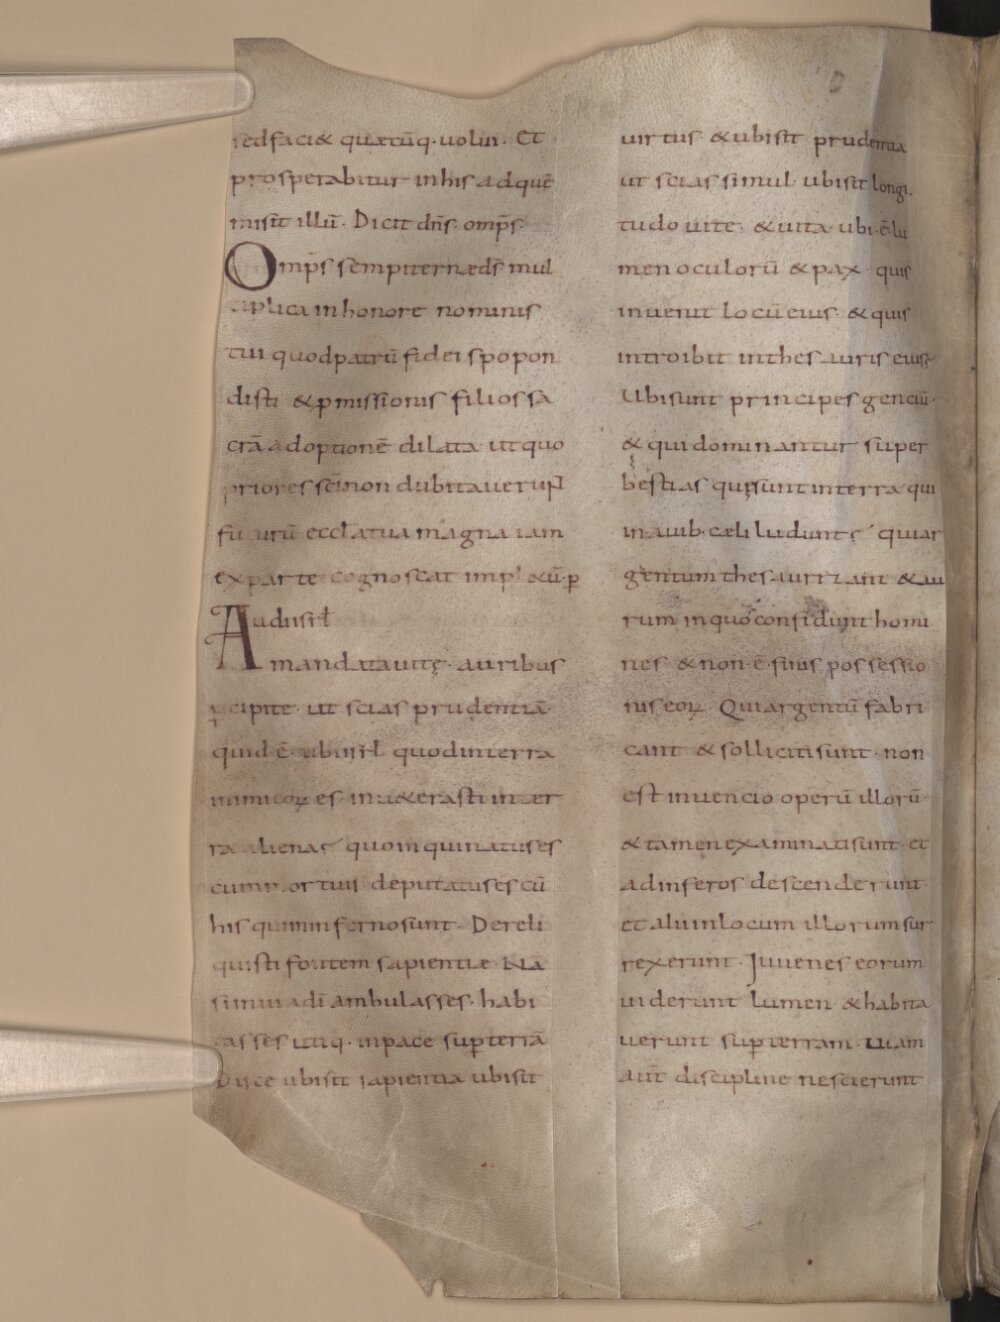 sed faci& quæcūq· uolui· Et
prosperabitur in his ad quē
misit̄ illū· Dicit dn̄s omp̄s·
Omp̄s sempiternæ ds̄ mul
tiplica in honore nominis
tui quod patrū fidei spopon
disti & p̱missionis filios sa
crā adoptionē dilata ut quo
priores sc̄i non dubitauerun̄
futurū eccła tua magna iam
ex parte cognoscat impł &ū· ꝑ
Audi isrł
mandata uitę· auribus
ꝑcipite· ut scias prudentiā·
quid ē· ubi isrł quod in terra
inimicoꝝ es· inu&erasti in ter
ra aliena· quoinquinatus es
cum mortuis deputatus es cū
his qui in inferno sunt· Dereli
quisti fontem sapientiæ Nā
si in uia dī ambulasses· habi
tasses utiq· in pace sup̱ terrā
Disce ubi sit sapientia ubi sit
uirtus & ubi sit prudentia
ut scias simul· ubi sit longi
tudo uite· & uita ubi· ē· lu
men oculorū & pax· quis
inuenit locū eius· & quis
introibit in thesauris eius·
Ubi sunt principes genciū·
& qui dominantur super
bestias quę sunt in terra qui
in auib· cæli ludunt· qui ar
gentum thesaurizant & au
rum in quo confidunt homi
nes & non ē· finis possessio
nis eoꝝ· Qui argentū fabri
cant & solliciti sunt· non
est inuencio operū illorū·
& tamen examinati sunt· et
ad inferos descenderunt·
et alii in locum illorum sur
rexerunt· Iuuenes eorum
uiderunt lumen· & habita
uerunt sup̱ terram· uiam
aut̄ discipline nescierunt